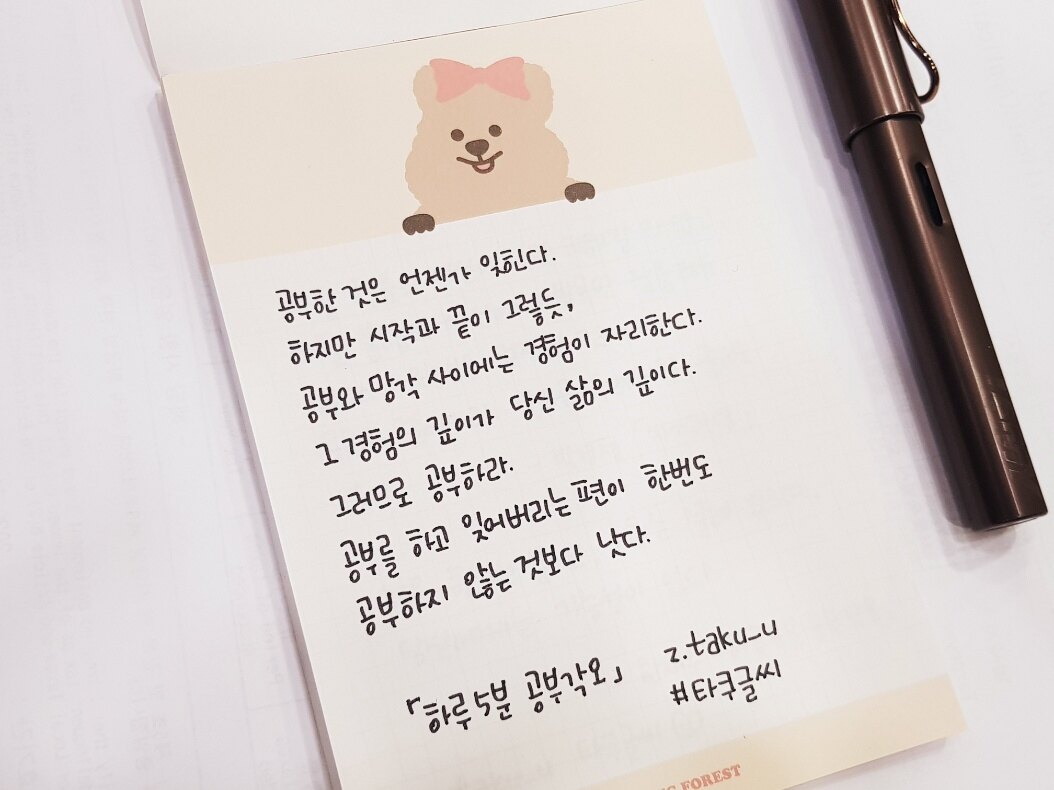 공부한 것은 언젠가 잊힌다.
하지만 시작과 끝이 그렇듯,
공부와 망각 사이에는 경험이 자리한다.
그 경험의 깊이가 당신 삶의 깊이다.
그러므로 공부하라.
공부를 하고 잊어버리는 편이 한번도
공부하지 않는 것보다 낫다.
「하루 5분 공부각오」
z.taku_u
#타쿠글씨
FOREST